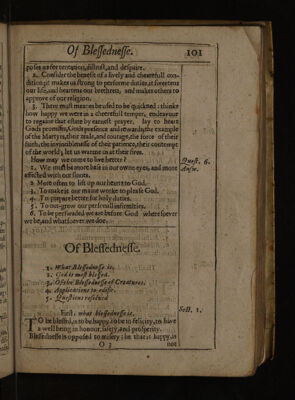 Of Blessednesse. 101
poses us for tentation, distrust, and despaire.
2. Consider the benefit of a lively and cheerefull con-
dition: it makes us strong to performe duties, it sweetens
our life, and heartens our brethren, and makes others to
approve of our religion.
3. There must meanes be used to be quickned: thinke
how happy we were in a cheerefull temper, endeavour
to regaine that estate by earnest prayer, lay to heart
Gods promises, Gods presence and rewards, the example
of the Martyrs, their zeale, and courage, the force of their
faith, the invinciblenesse of their patience, their contempt
of the world; let us warme us at their fire.
How may we come to live better?
Quest. 6.
1. We must be more base in our owne eyes, and more
Answ.
affected with our sinnes.
2. More often to lift up our heart to God.
3. To make it our maine worke to please God.
4. To prepare better for holy duties.
5. To out-grow our personall infirmities.
6. To be perswaded we are before God wheresoever
we be, and whatsoever we doe.
Of Blessednesse.
1. What Blessednesse is.
2. God is most blessed.
3. Of the Blessednesse of Creatures.
4. Applications to edifie.
5. Questions resolved
First, what blessednesse is.
Sect. 1.
TO be blessed, is to be happy, to be in felicity, to have
a well being in honour, safety, and prosperity.
Blessednesse is opposed to misery; he that is happy, is
O 3 not